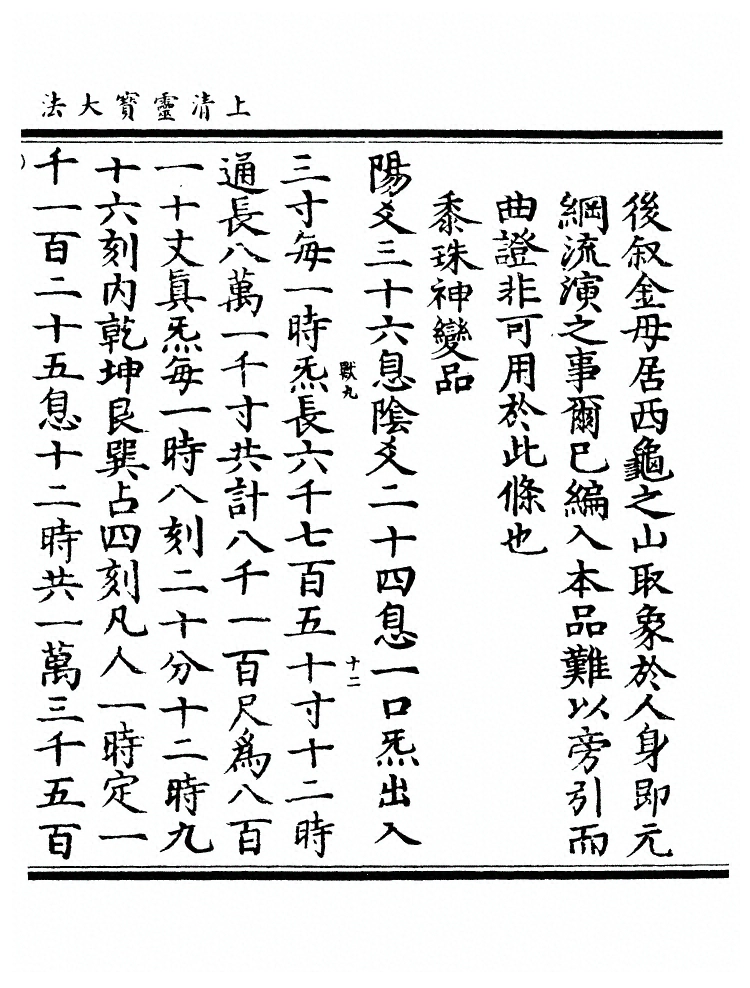 上清靈寶大法
後叙金母居西龜之山取象於人身即元
綱流演之事爾已編入本品難以旁引而
曲證非可用於此條也
黍珠神變品
陽爻三十六息陰爻二十四息一口炁出入
獸九
十二
三寸每一時炁長六千七百五十寸十二時
通長八萬一千寸共計八千一百尺爲八百
一十丈眞炁每一時八刻二十分十二時九
十六刻内乾坤艮巽占四刻凡人一時定一
千一百二十五息十二時共一萬三千五百